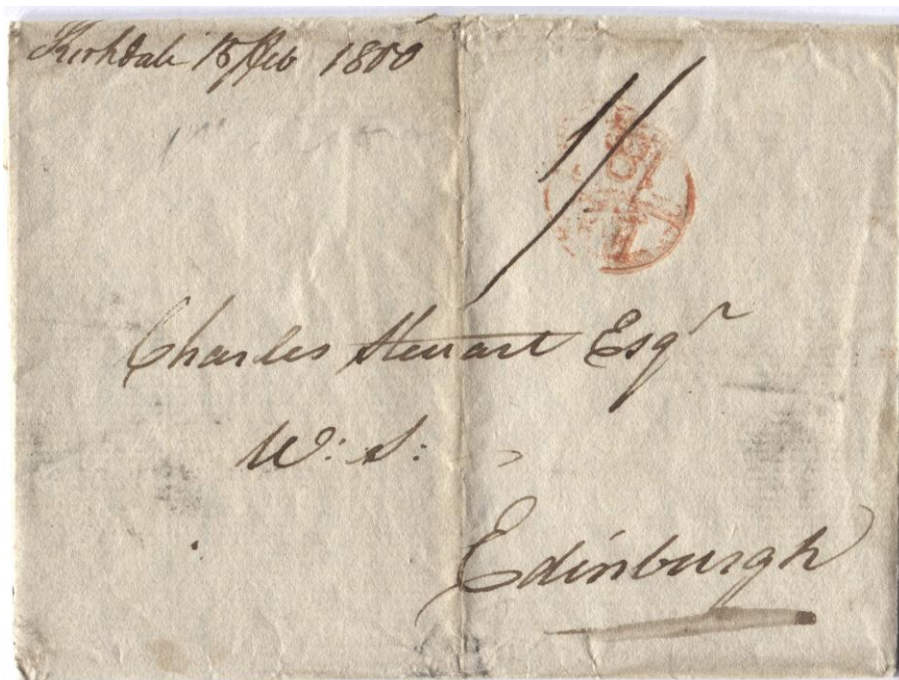 Kirkdale 15 Feb 1800
1/
Charles Steuart Esqr
W: S:
Edinburgh